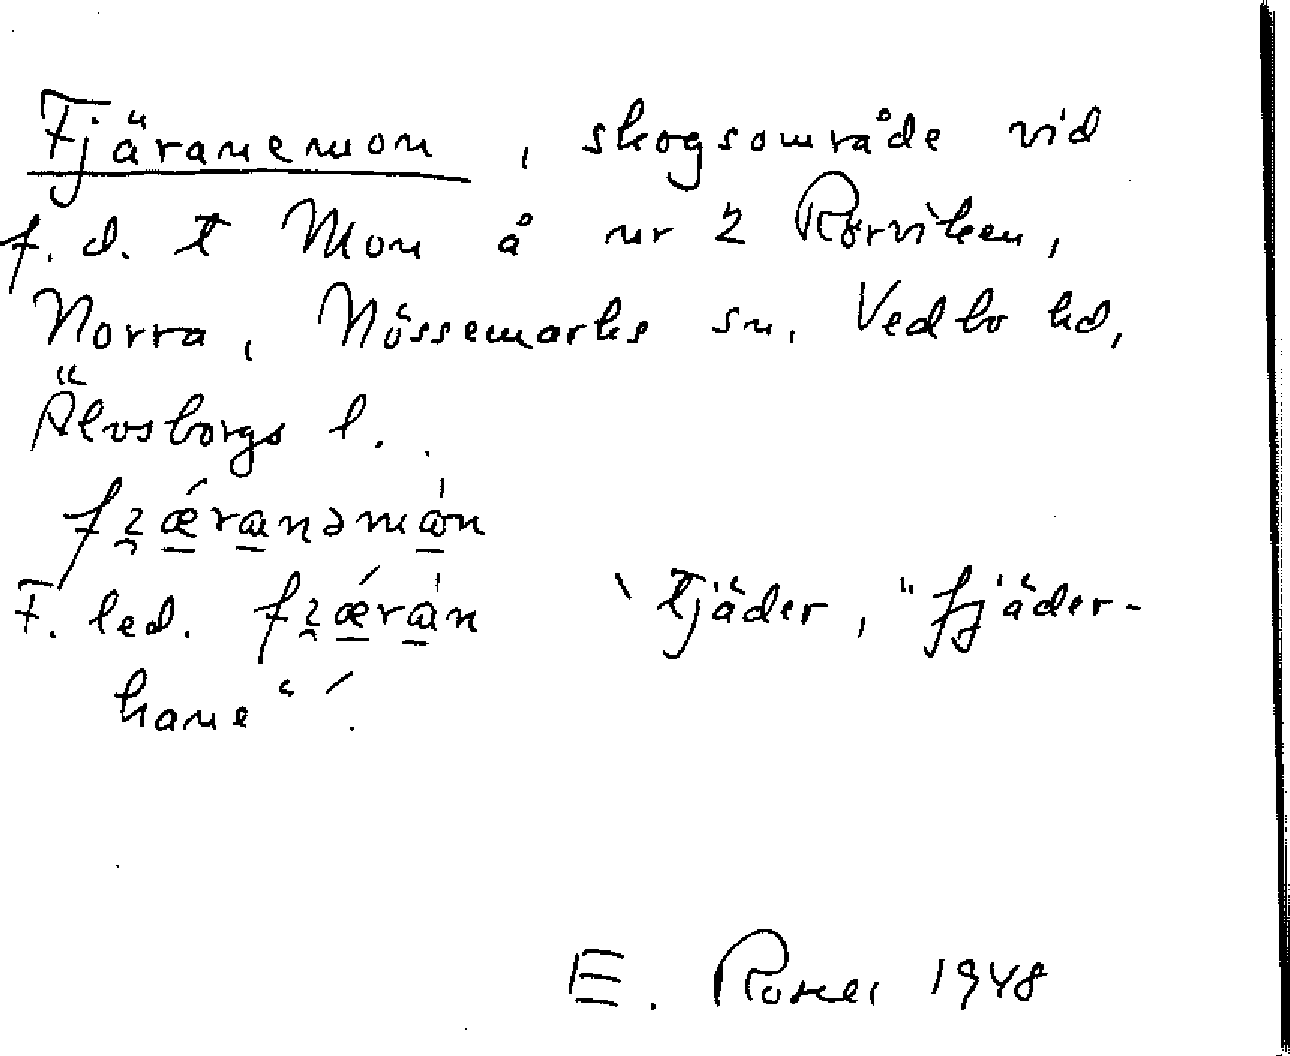 Fjäranemon, skogsområde vid
f.d. t Mon å nr 2 Rörviken,
Norra, Nössemarks sn, Vedbo hd,
Älvsborgs l.
fɀǽranəmȯn
F. led. fɀǽrȧn 'tjäder, "fjäder-
hane"'.
E. 1948